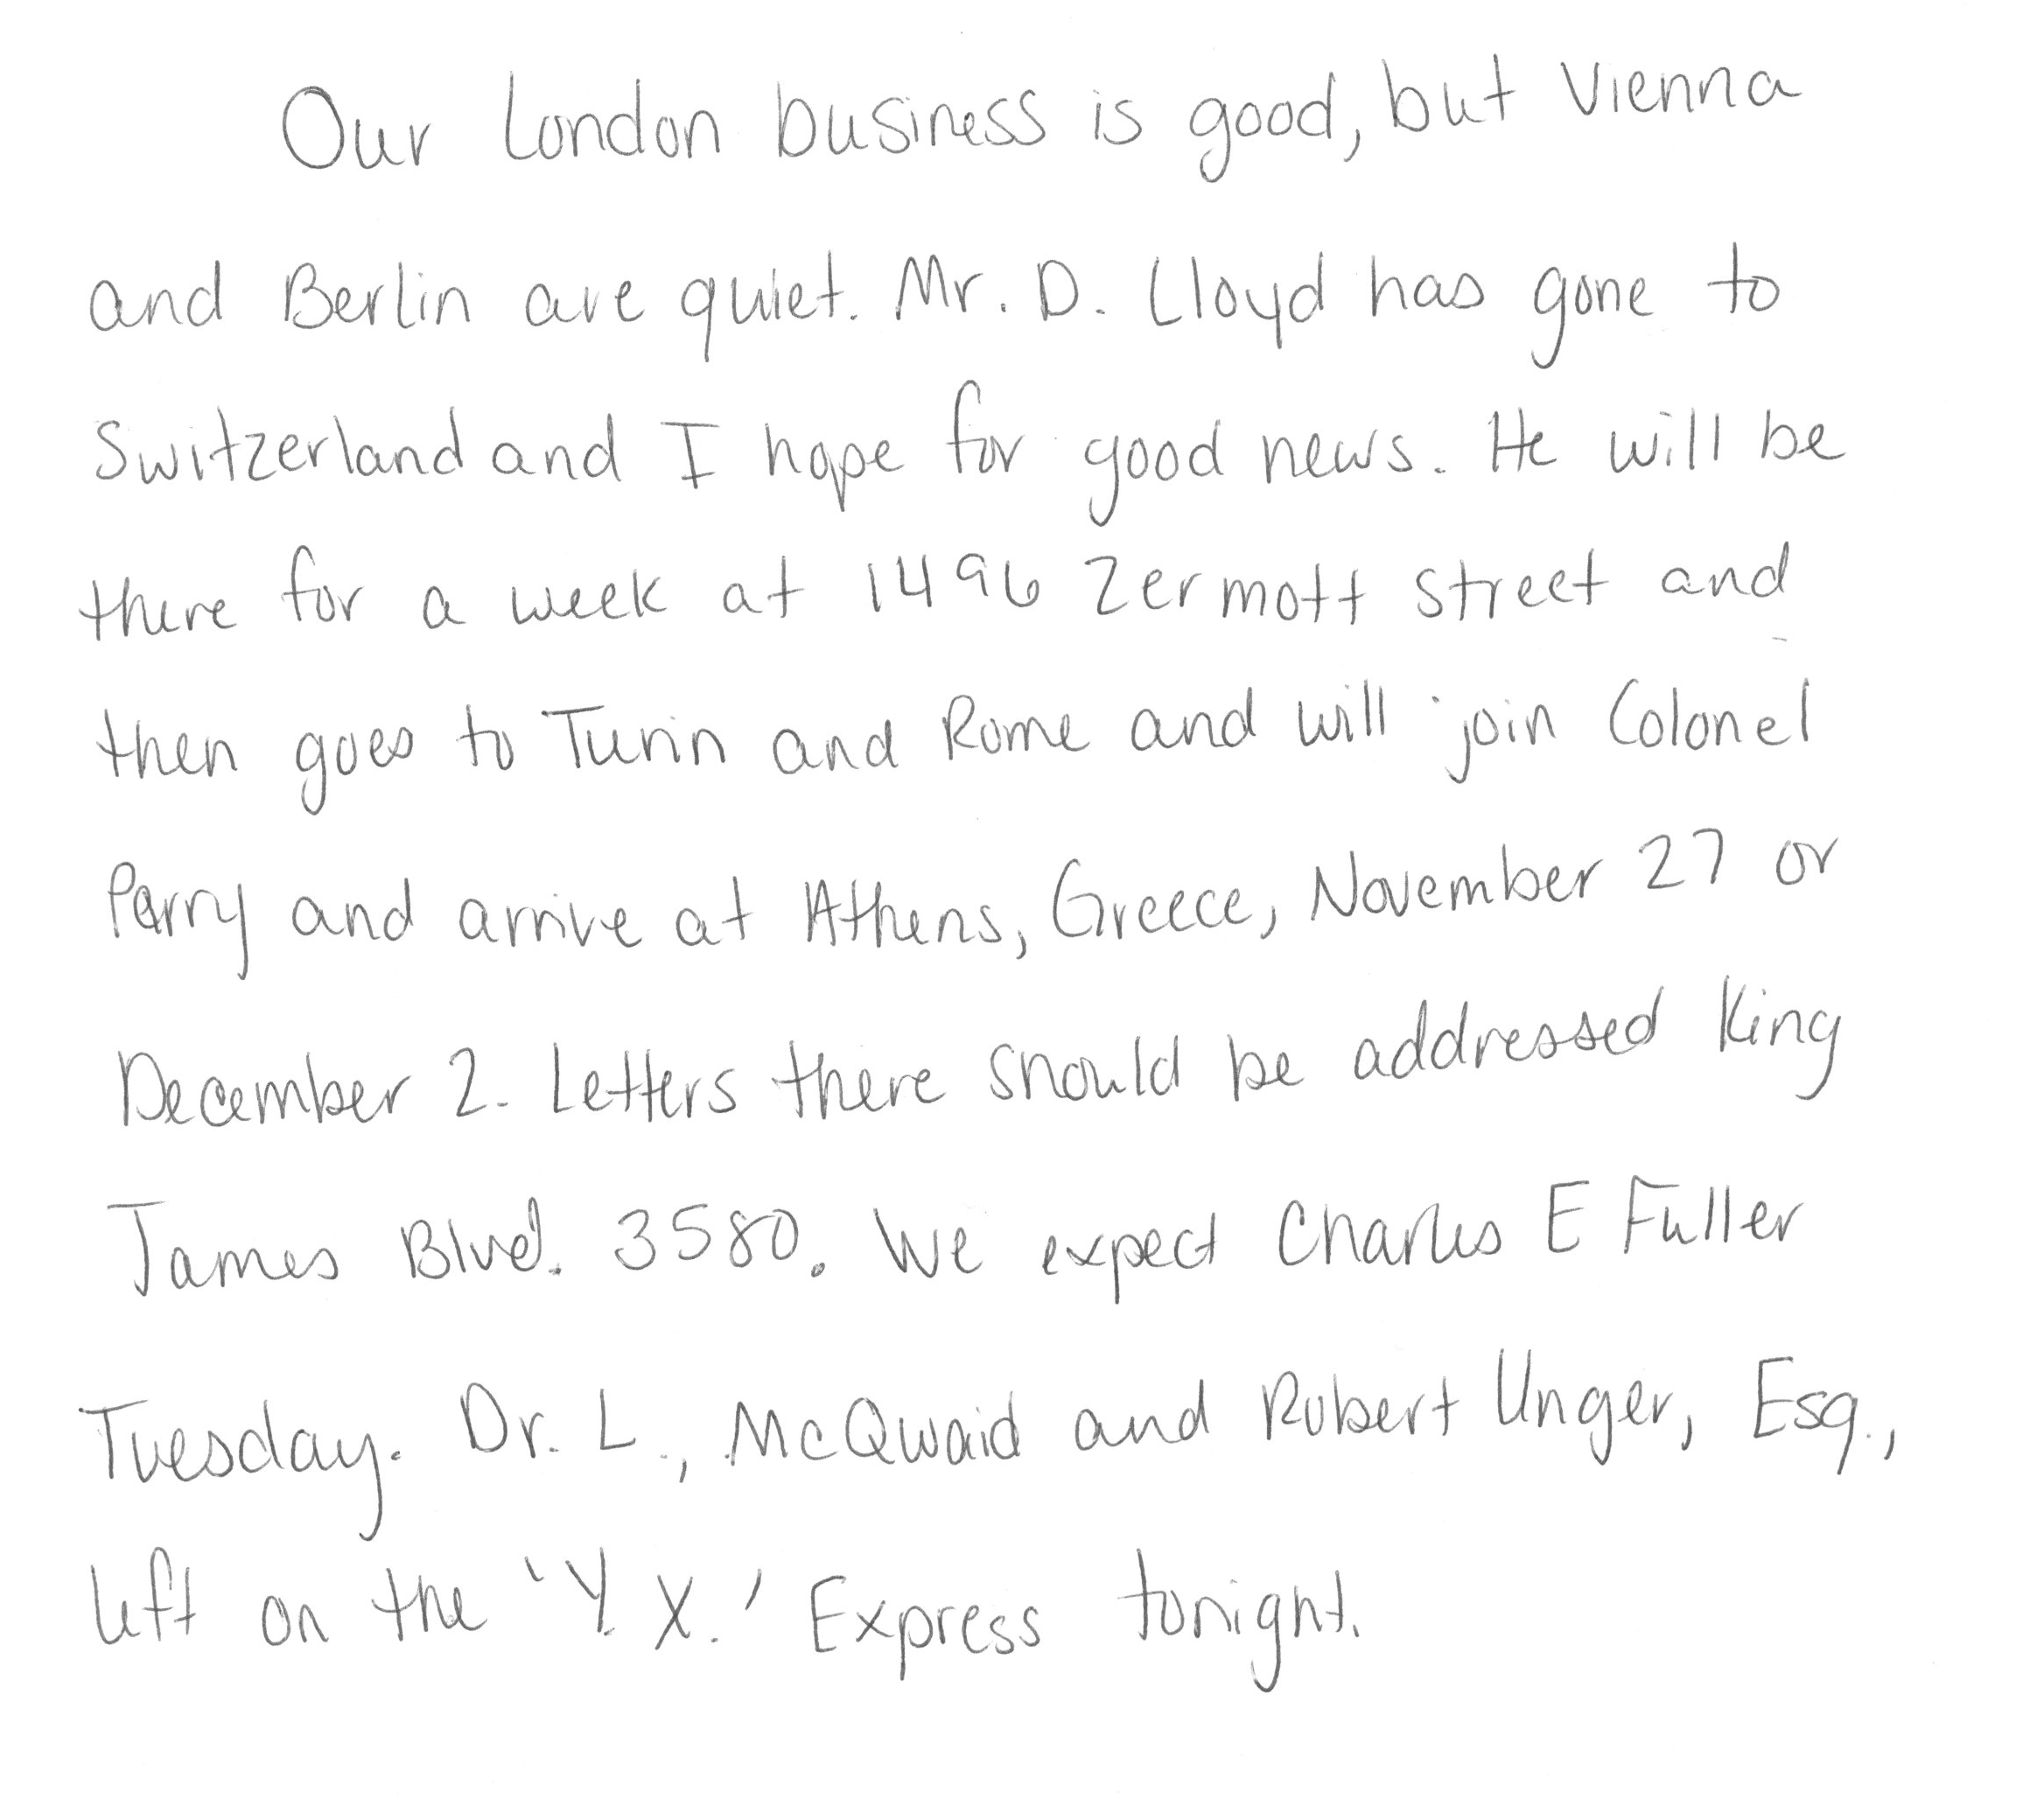 Our London business is good, but Vienna
and Berlin are quiet. Mr. D. Lloyd has gone to
Switzerland and I hope for good news. He will be
there for a week at 1496 Zermott street and
then goes to Turin and Rome and will join Colonel
Parry and arrive at Athens, Greece, November 27 or
December 2. Letters there should be addressed King
James Blvd. 3580. We expect Charles E Fuller
Tuesday. Dr. L., McQuaid and Robert Unger, Esq.,
left on the 'Y. X.' Express tonight.